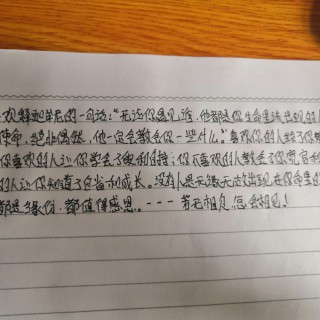 欢释迦牟尼的一句话："无论你遇见谁，他都是你生命里该出现的人
绝非偶然，他一定会教会你一些什么。"喜欢你的人给了你
你喜欢的人让你学会了爱和；你不喜欢的人教会了你
的人让你知道了自省和成长。没有人是无缘无故出现在你命里的
都是缘份，都值得感恩。---若无相欠，怎会相见！